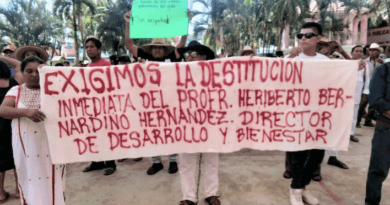 EXIGIMOS LA DESTITUCIÓN
INMEDIATA DEL PROFR. HERIBERTO BER-
NARDINO HERNÁNDEZ. DIRECTOR
DE DESARROLLO Y BIENESTAR